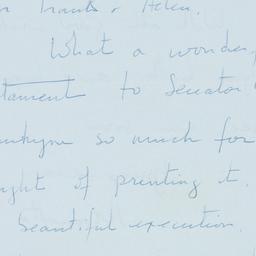 Helen.
What a wonder
tament to Senator
so much for
ght of printing it.
beautiful execution.